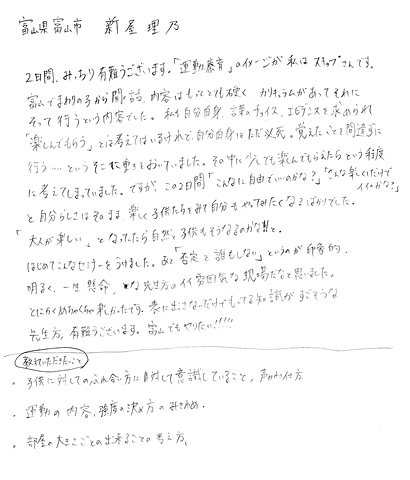 富山県富山市 新屋理乃
2日間、みっちり有難うございます。「運動療育」のイメージが私はスキップさんです。
富山でまわりの子から聞く話、内容はもっととても硬く カリキュラムがあってそれに
そって行うという内容でした。私も自分自身、言葉のチョイス、エビデンスを求められ
「楽しんでもらう」とは考えてはいるけれど、自分自身はただ必死。覚えたことを間違えずに
行う…というそこに重きをおいていました。その中に少しでも楽しんでもらえたらという程度
に考えてしまっていました。ですが、この2日間「こんなに自由でいいのかな?」「こんな楽しくだけで
イイのかな?」
と自分らしさはそのまま 楽しく子供たちをみて自分もやってみたくなるばかりでした。
「大人が楽しい」となったら自然と子供もそうなるのかな!!と
はじめてこんなセミナーをうけました。あと「否定を誰もしない」というのが印象的。
明るく、一生懸命、 な先生方のイイ雰囲気な現場だなと思いました。
とにかくめちゃくちゃ楽しかったです。表に出さないだけでもってる知識がすごそうな
先生方、有難うございます。富山でもやりたい!!!!!
教えていただきたいこと
・子供に対してのふれ合い方に対して意識していること、声かけ仕方
・運動の内容、強度の決め方のみきわめ。
・部屋の大きさごとの出来ることの考え方。